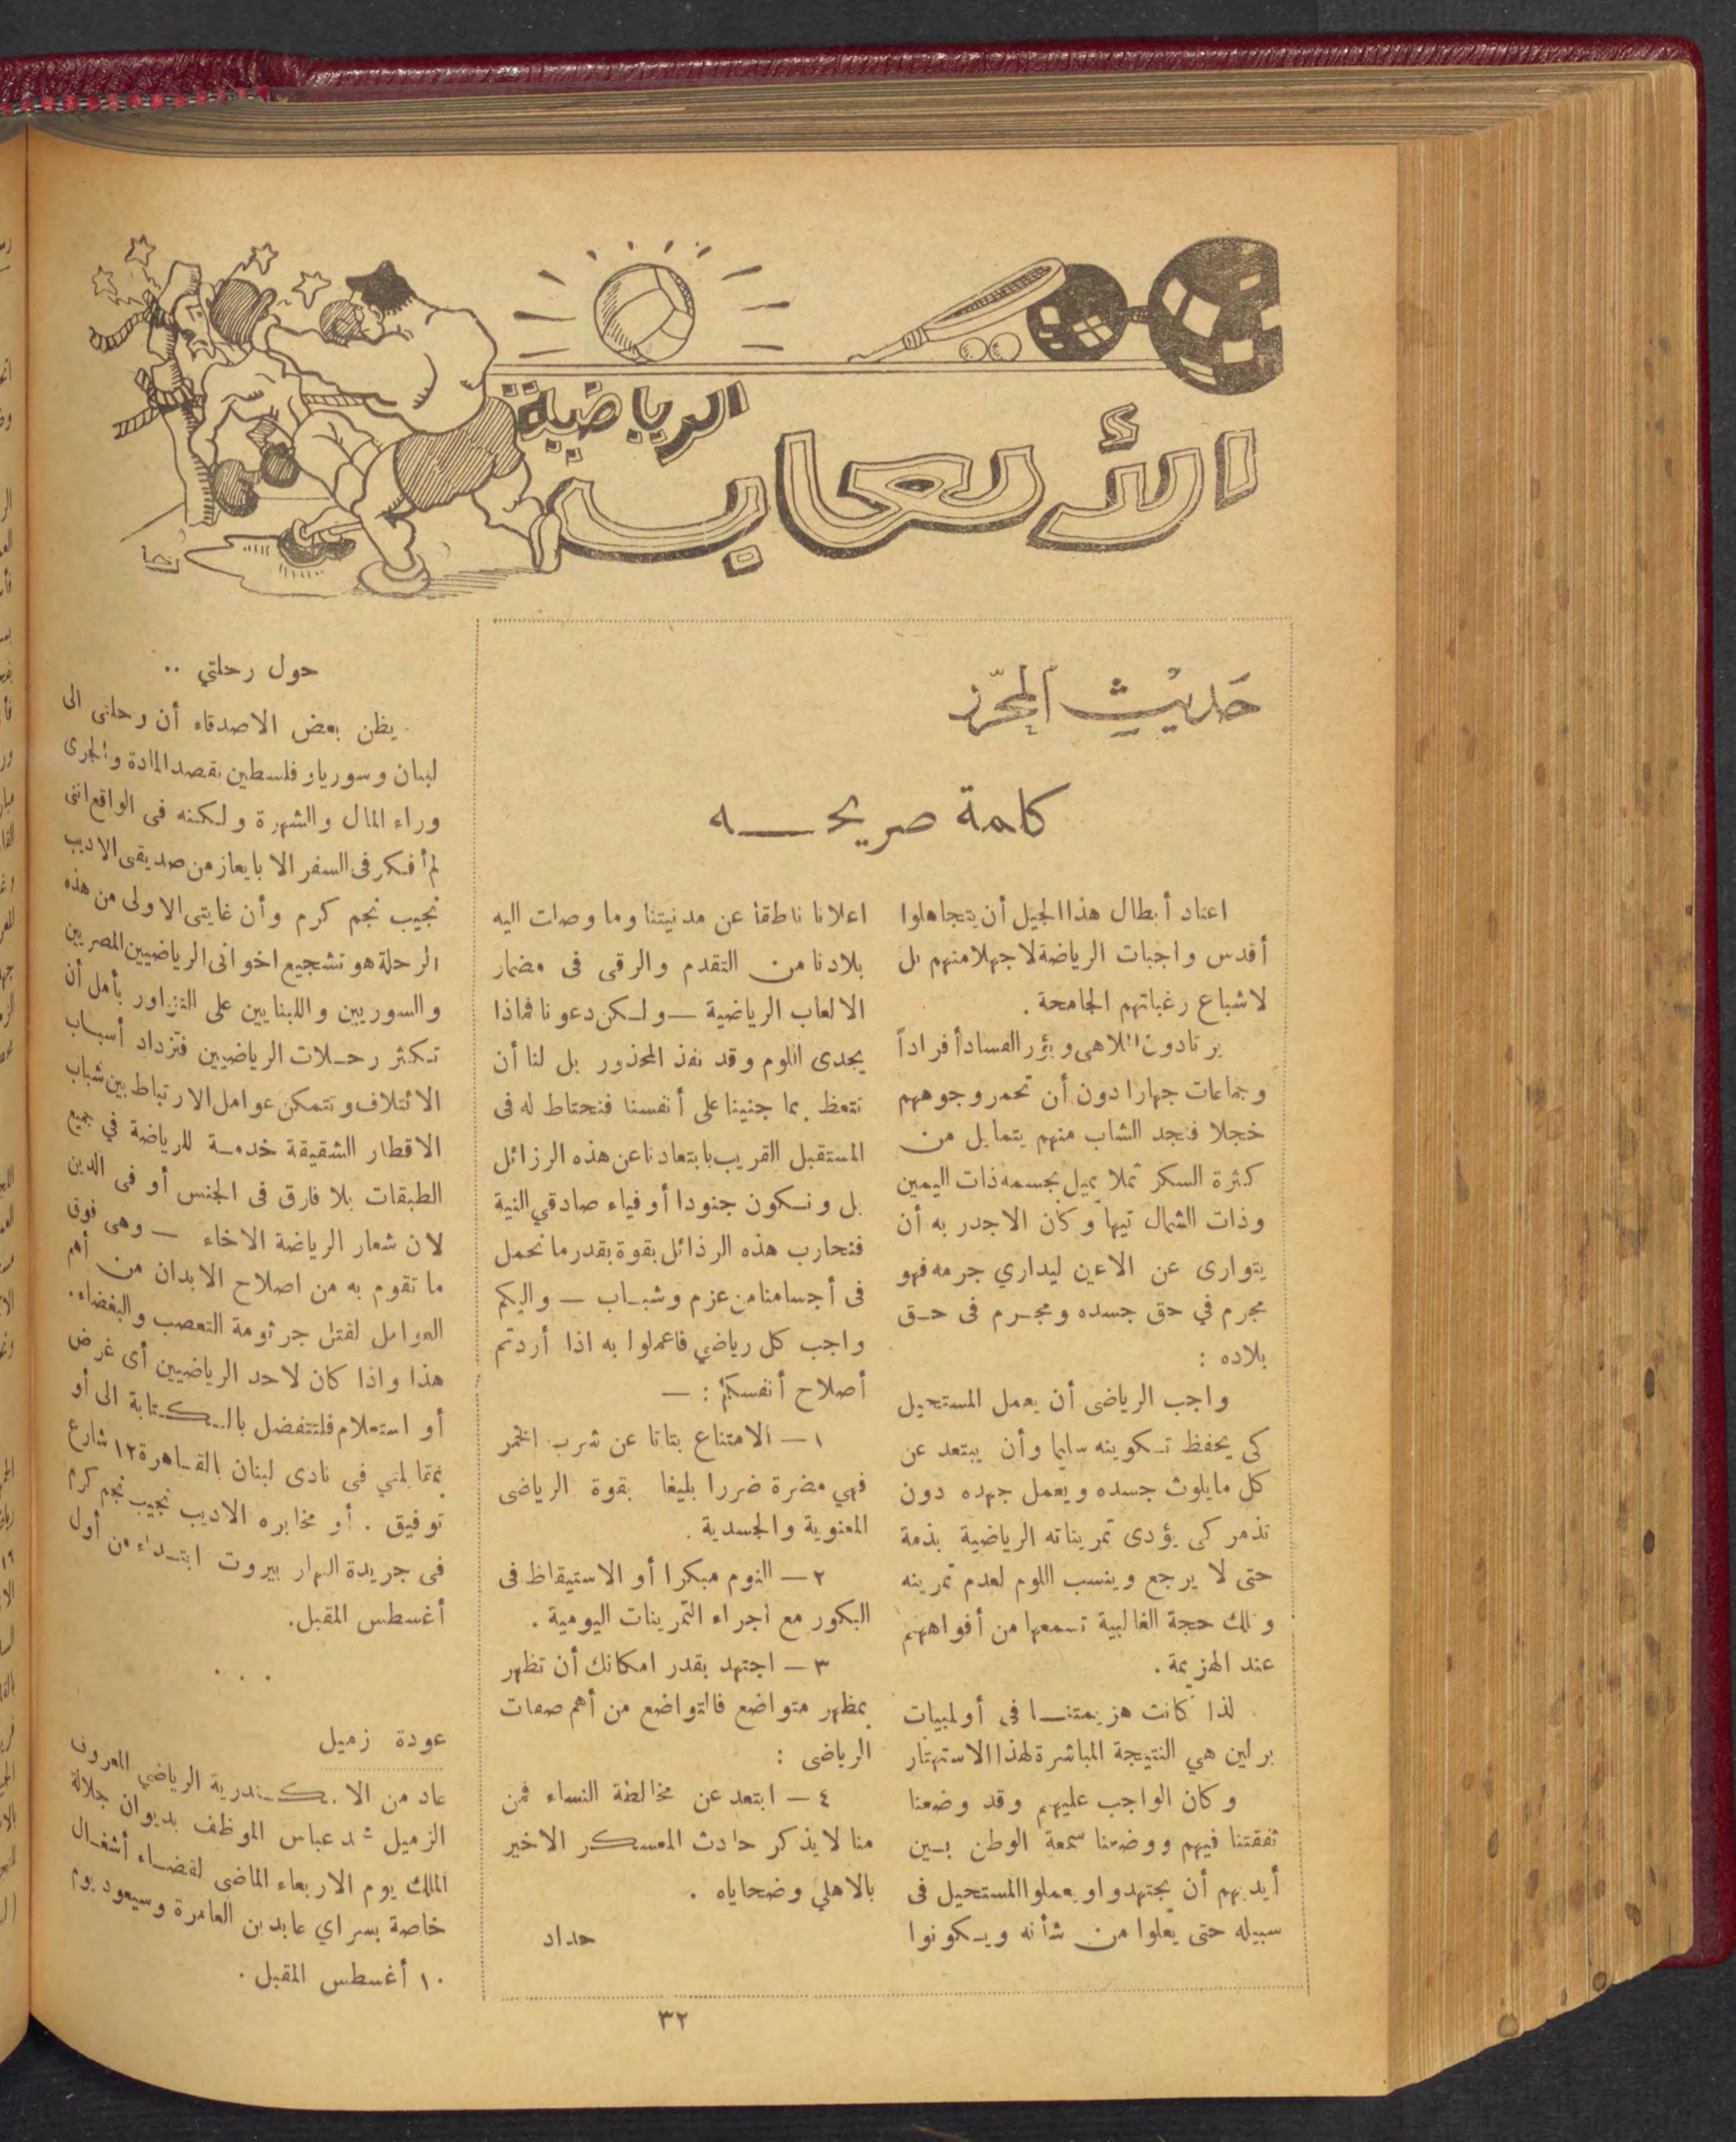 الرياضية
الألعاب
حديث المحرر
كلمة صريحـــه
اعتاد أبطال هذا الجيل أن يتجاهلوا
أقدس واجبات الرياضة لا جهلا منهم بل
لاشباع رغباتهم الجامحة .
يرتادون الملاهى وبؤر الفساد أفراداً
وجماعات جهارا دون أن تحمر وجوههم
خجلا فتجد الشاب منهم يتمايل من
كثرة السكر ثملا يميل بجسمه ذات اليمين
وذات الشمال تيها وكان الاجدر به أن
يتوارى عن الاعين ليداري جرمه فهو
مجرم في حق جسده ومجرم فى حق
بلاده :
واجب الرياضى أن يعمل المستحيل
كى يحفظ تكوينه سليما وأن يبتعد عن
كل مايلوث جسده ويعمل جهده دون
تذمر كى يؤدى تمريناته الرياضية بذمة
حتى لا يرجع وينسب اللوم لعدم تمرينه
وتلك حجة الغالبية تسمعها من أفواههم
عند الهزيمة .
لذا كانت هزيمتنا فى أولمبيات
برلين هي النتيجة المباشرة لهذا الاستهتار
وكان الواجب عليهم وقد وضعنا
ثقتنا فيهم ووضعنا سمعة الوطن بين
أيديهم أن يجتهدوا ويعملوا المستحيل فى
سبيله حتى يعلوا من شأنه ويكونوا
اعلانا ناطقا عن مدنيتنا وما وصلت اليه
بلادنا من التقدم والرقى فى مضمار
الالعاب الرياضية — ولكن دعونا فماذا
يجدى اللوم وقد نفذ المحذور بل لنا أن
نتعظ بما جنينا على أنفسنا فنحتاط له فى
المستقبل القريب بابتعادنا عن هذه الرزائل
بل ونكون جنودا أوفياء صادقي النية
فنحارب هذه الرذائل بقوة بقدر ما نحمل
فى أجسامنا من عزم وشباب — واليكم
واجب كل رياضي فاعملوا به اذا أردتم
أصلاح أنفسكم : —
١ — الامتناع بتاتا عن شرب الخمر
فهي مضرة ضررا بليغا بقوة الرياضى
المعنوية والجسدية .
٢ — النوم مبكرا أو الاستيقاظ فى
البكور مع اجراء التمرينات اليومية .
٣ — اجتهد بقدر امكانك أن تظهر
بمظهر متواضع فالتواضع من أهم صفات
الرياضى :
٤ — ابتعد عن مخالطة النساء فمن
منا لا يذكر حادث المعسكر الاخير
بالاهلي وضحاياه .
حداد
حول رحلتي ..
يظن بعض الاصدقاء أن رحلتى الى
لبنان وسوريا وفلسطين بقصد المادة والجرى
وراء المال والشهرة ولكنه فى الواقع اننى
لم أفكر فى السفر الا بايعاز من صديقى الاديب
نجيب نجم كرم وأن غايتى الاولى من هذه
الرحلة هو تشجيع اخوانى الرياضيين المصريين
والسوريين واللبنايين على التزاور بأمل أن
تكثر رحلات الرياضيين فتزداد أسباب
الائتلاف وتتمكن عوامل الارتباط بين شباب
الاقطار الشقيقة خدمة للرياضة في جميع
الطبقات بلا فارق فى الجنس أو فى الدين
لان شعار الرياضة الاخاء — وهى فوق
ما تقوم به من اصلاح الابدان من أهم
العوامل لقتل جرثومة التعصب والبغضاء.
هذا واذا كان لاحد الرياضيين أى غرض
أو استعلام فلتتفضل بالكتابة الى أو
بمقابلتي فى نادى لبنان بالقاهرة ١٢ شارع
توفيق . أو مخابره الاديب نجيب نجم كرم
فى جريدة النهار بيروت ابتداء من أول
أغسطس المقبل.
. . .
عودة زميل
عاد من الاسكندرية الرياضي المعروف
الزميل عباس الموظف بديوان جلالة
الملك يوم الاربعاء الماضى لقضاء أشغال
خاصة بسراي عابدين العامرة وسيعود يوم
١٠ أغسطس المقبل .
٣٢